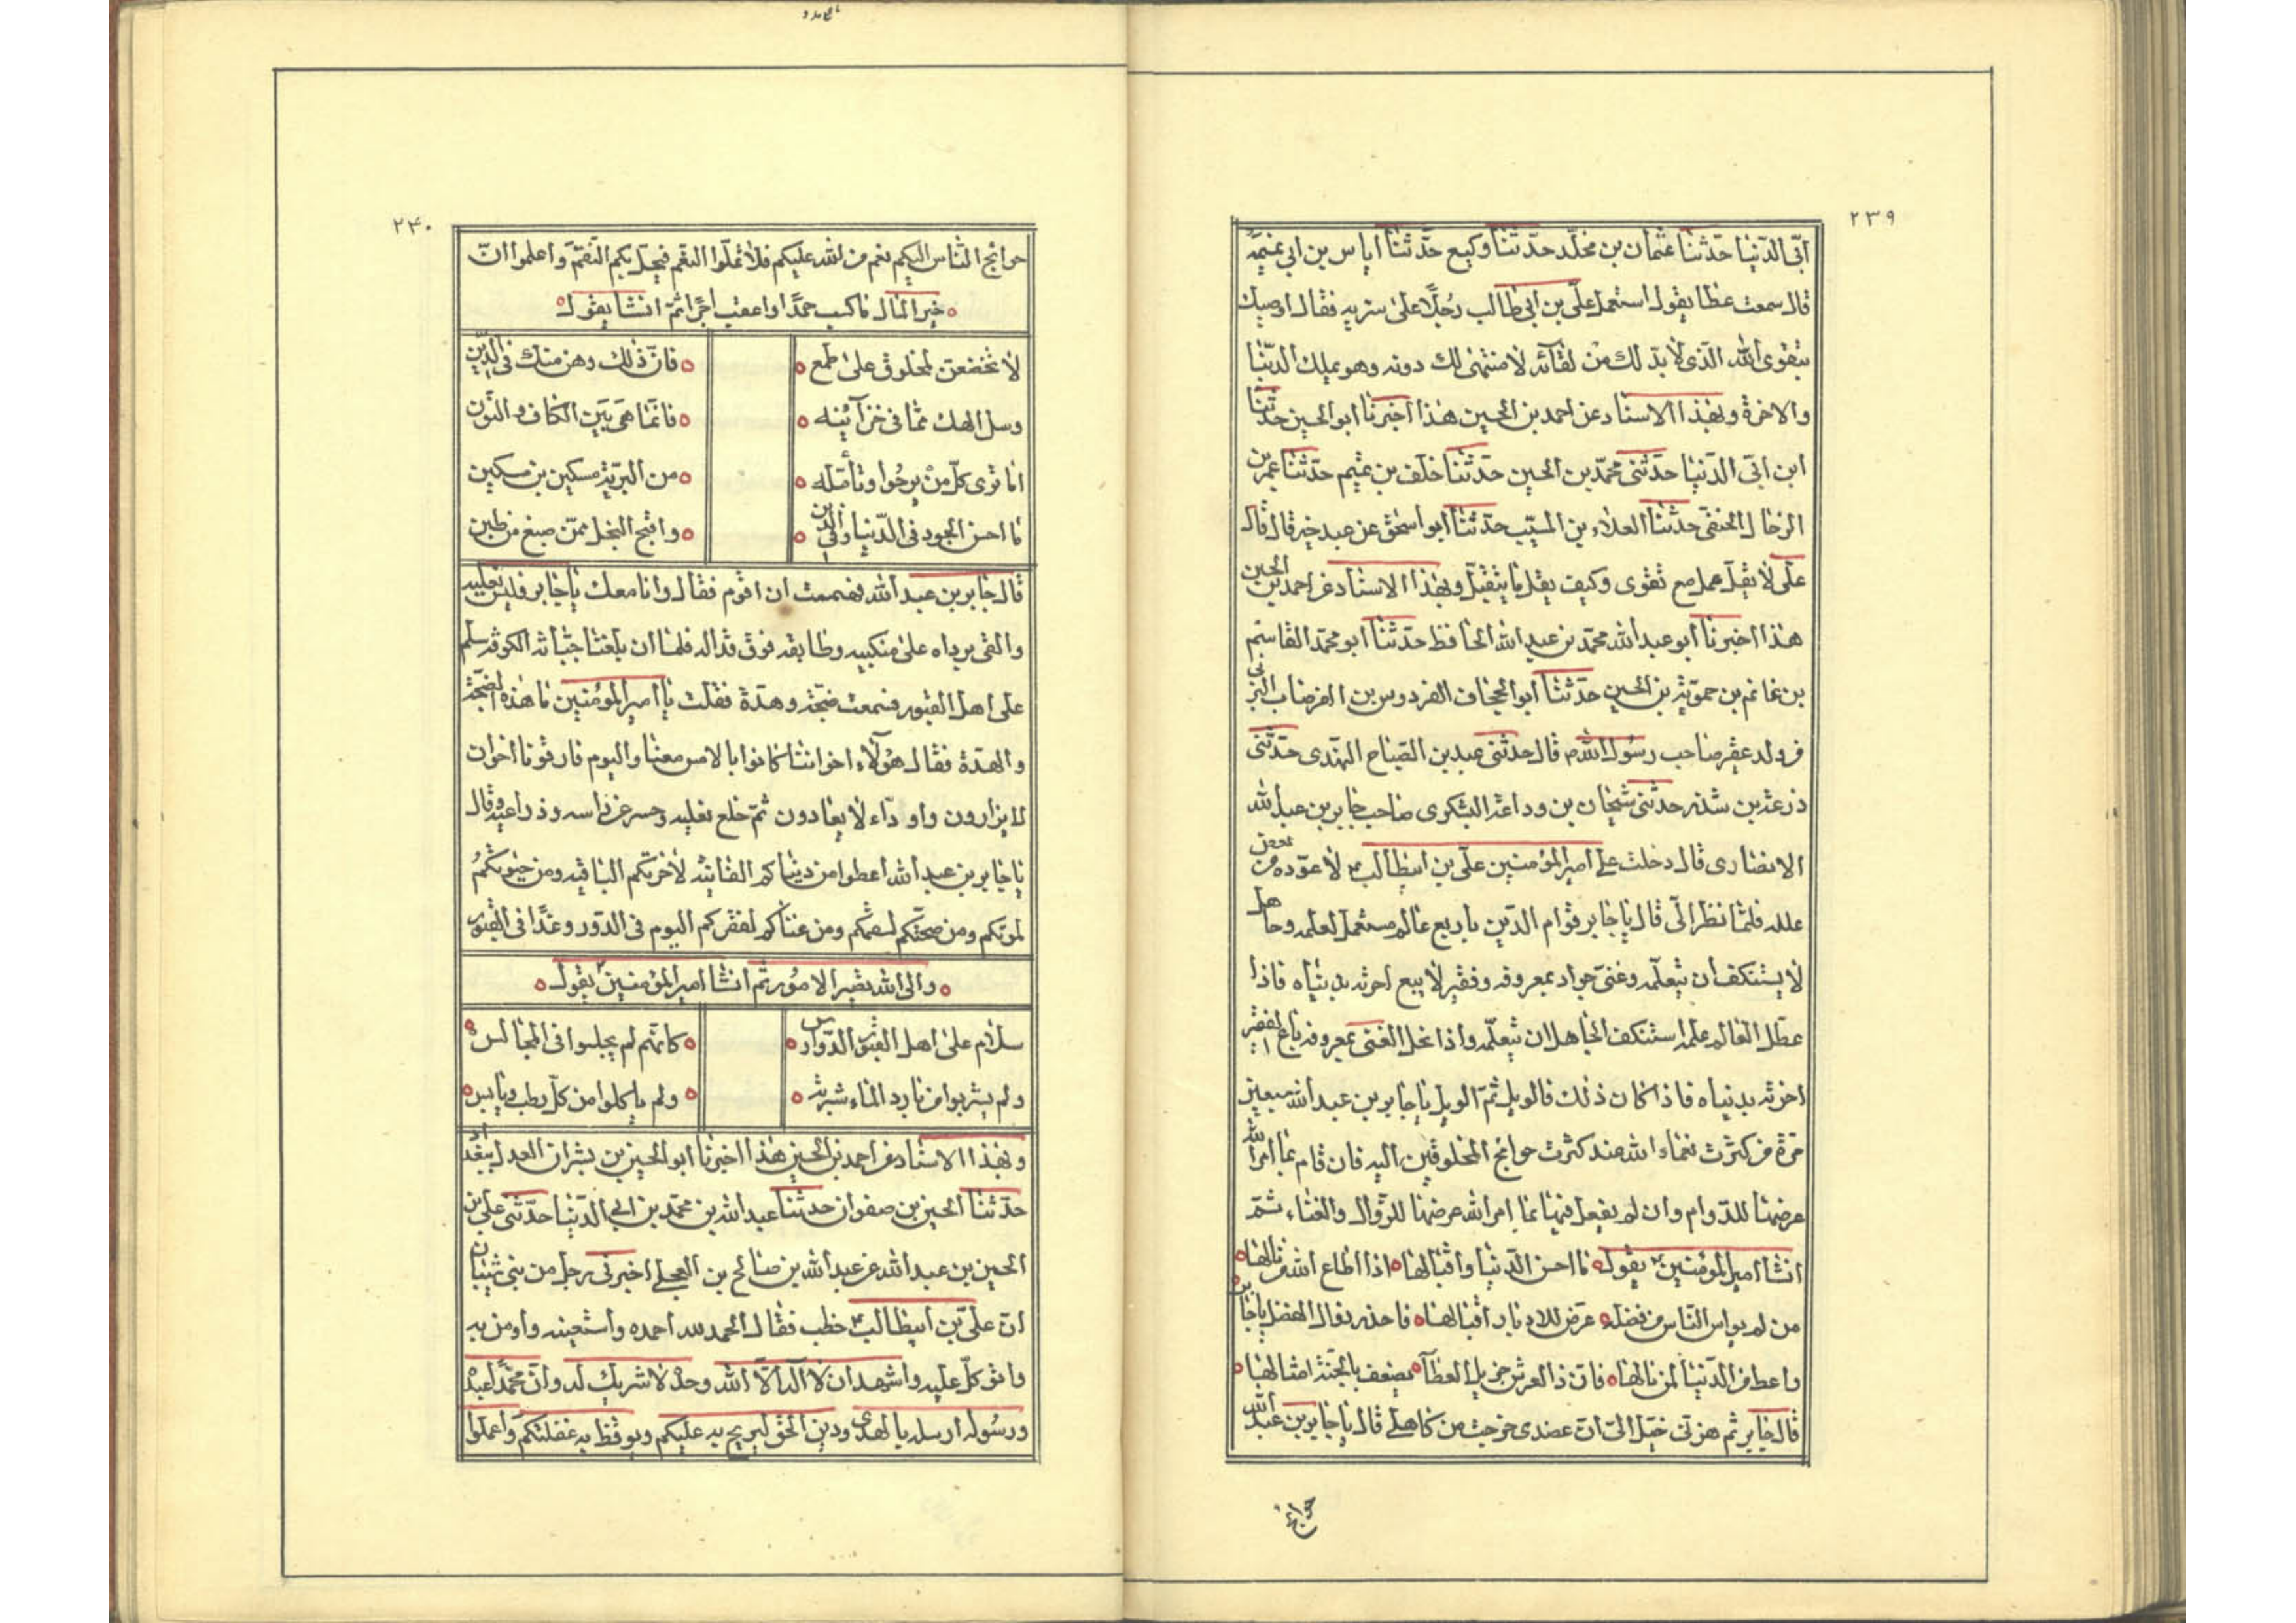 ٢٣٩
ابی الدّنیا حدّثنا عثمان بن مخلّد حدّثنا وکیع حدّثنا ایاس بن ابی
قال سمعت عطا یقول استعمل علیّ بن ابی طالب رجلًا علی سریه فقال اوصیك
بتقوی الله الّذی لا بدّ لك من لقآئه لا منتهی لك دونه وهو یملك الدّنیا
والاخرة وبهذا الاسناد عن احمد بن الحسین هذا اخبرنا ابو الحسین حدّثنا
ابن ابی الدّنیا حدّثنی محمّد بن الحسین حدّثنا خلف بن تمیم حدّثنا عمر بن
الرحال الحنفی حدّثنا العلاء بن المسیّب حدّثنا ابو اسحٰق عن عبد خیر قال قال
علی لا یقلّ عمل مع تقوی وکیف یقل ما یتقبّل وبهذا الاسناد عن احمد بن الحسین
هذا اخبرنا ابو عبد الله محمّد بن عبد الله الحافظ حدّثنا ابو محمّد القاسم
بن غانم بن حمویّة بن الحسین حدّثنا ابو الحجاف الفردوس بن القرضاب
من ولد صاحب رسول الله ص قال حدّثنی عبید بن الصّباح النهدی حدّثنی
ذرعة بن حدّثنی شیخان بن وداعة الیشکری صاحب جابر بن عبد الله
الانصاری قال دخلت علی امیر المؤمنین علیّ بن ابیطالب لا عوّده من بعض
علله فلمّا نظر الیّ قال یا جابر قوام الدّین باربع عالم مستعمل لعلمه وجاهل
لا یستنکف ان یتعلّمه وغنیّ جواد بمعروفه وفقیر لا یبیع اخرته بدنیاه فاذا
عطّل العالم علمه استنکف الجاهل ان یتعلّمه واذا بخل الغنی بمعروفه باع الفقیر
اخرته بدنیاه فاذا کان ذلك فالویل ثمّ الویل یا جابر بن عبد الله سبعین
مرّة من کثرت نعماء الله عنده کثرت حوائج المخلوقین الیه فان قام بما امر الله
عرضها للدّوام وان لم یفعل فیها بما امر الله عرضها للزّوال والفناء ثمّ
انشا امیر المؤمنین یقول ما احسن الدّنیا واقبالها اذا اطاع الله من نالها
من لم یواس النّاس من فضله عرّض للادبار اقبالها فاحذر زوال الفضل یا جابر
واعط من الدّنیا لمن نالها فان ذا العرش جزیل العطآ یضعف بالجنّة امثالها
قال جابر ثم هزنی خیّل الیّ ان عضدی خرجت من کاهلی قال یا جابر بن عبد الله
حوائج
٢۴٠
حوائج النّاس الیکم نعم من الله علیکم فلا تملّوا النعم فیحلّ بکم النّقم واعلموا انّ
خیر المال ما کسب حمدًا واعقب اجرًا ثمّ انشا یقول
لا تخضعن لمخلوق علی طمع فانّ ذلك وهن منك فی الدّین
وسل الهك ممّا فی خزآئنه فانّما هی بین الکاف والنّون
اما تری کلّ من یرجوا وتأمله من البریّة مسکین بن مسکین
ما احسن الجود فی الدّنیا وفی الدّین واقبح البخل ممّن صیغ من طین
قال جابر بن عبد الله فهممت ان اقوم فقال وانا معك یا جابر فلبس نعلیه
والقی برداه علی منکبیه وطایفة فوق قذاله فلما ان بلغنا جبّانة الکوفة سلّم
علی اهل القبور فسمعت ضجّة وهدّة فقلت یا امیر المؤمنین ما هذه الضجّة
والهدّة فقال هؤلآء اخواننا کانوا بالامس معنا والیوم فارقونا اخوان
لا یزارون واودّاء لا یعادون ثمّ خلع نعلیه وحسر عن راسه وذراعیه وقال
یا جابر بن عبد الله اعطوا من دنیاکم الفانیة لاخرتکم الباقیة ومن حیوتکم
لموتکم ومن صحّتکم لسقمکم ومن غناکم لفقرکم الیوم فی الدّور وغدًا فی القبور
والی الله تصیر الامور ثم انشا امیر المؤمنین یقول
سلام علی اهل القبور الدّوارس کانّهم لم یجلسوا فی المجالس
ولم یشربوا من بارد الماء شربة ولم یاکلوا من کلّ رطب ویابس
وبهذا الاسناد عن احمد بن الحسین هذا اخبرنا ابو الحسین بن بشران العدل ببغداد
حدّثنا الحسین بن صفوان حدّثنا عبد الله بن محمّد بن ابی الدّنیا حدّثنی علی بن
الحسین بن عبد الله عن عبد الله بن صالح بن العجلی اخبرنی رجل من بنی شیبان
انّ علیّ بن ابیطالب خطب فقال الحمد لله احمده واستعینه واومن به
واتوکّل علیه واشهد ان لا اله الّا الله وحده لا شریك له وانّ محمّدًا عبده
ورسوله ارسله بالهدی ودین الحق لیزیح به علیکم ویوقظ به غفلتکم واعلموا